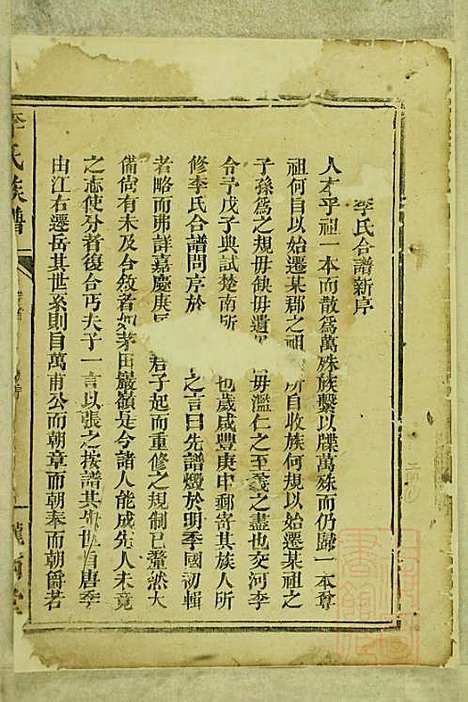 李氏合譜新序
人才乎祖一本而散爲萬殊族繫以牒萬殊而仍歸一本尊
祖何自以始遷某郡之祖 所自收族何規以始遷某祖之
子孫爲之規毋缺毋遺 毋濫仁之至義之盡也交河李
令予戊子典試楚南所 也歲咸豐庚申郵寄其族人所
修李氏合譜問序於 之言曰先譜燬於明季國初輯
者略而弗詳嘉慶庚 君子起而重修之規制已釐然大
備尙有未及合敘者如茅田巖嶺是今諸人能成先人未竟
之志使分者復合丐夫子一言以張之按譜其先世自唐季
由江右遷岳其世系則自萬甫公而朝章而朝奉而朝爵者
李氏族譜